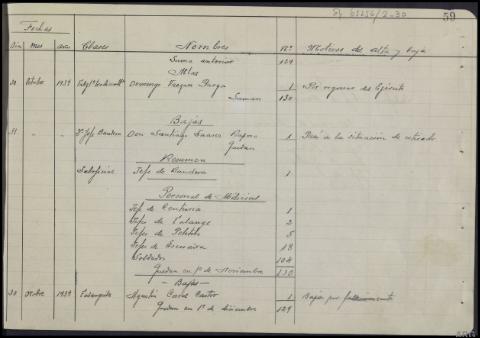 59
Fechas
Dia Mes Año Clases Nombres Nº Motivos del alta y baja
Suma anterior 129
Altas
30 Octubre 1939 Domingo Vazquez 1 Por regreso del Ejército
Suman 130
Bajas
31 " " Jefe Bandera Don Santiago Suarez 1 Pasó a la situación de retirado
Quedan
Resumen
Suboficial Jefe de Bandera 1
Personal de Milicias
Jefe de Centuria 1
Jefes de Falange 2
Jefes de Pelotón 5
Jefes de Escuadra 18
Soldados 104
Quedan en 1º de Noviembre 130
Bajas
30 1939 Falangista Agustín Castro 1 Baja por fallecimiento
Quedan en 1º de diciembre 129